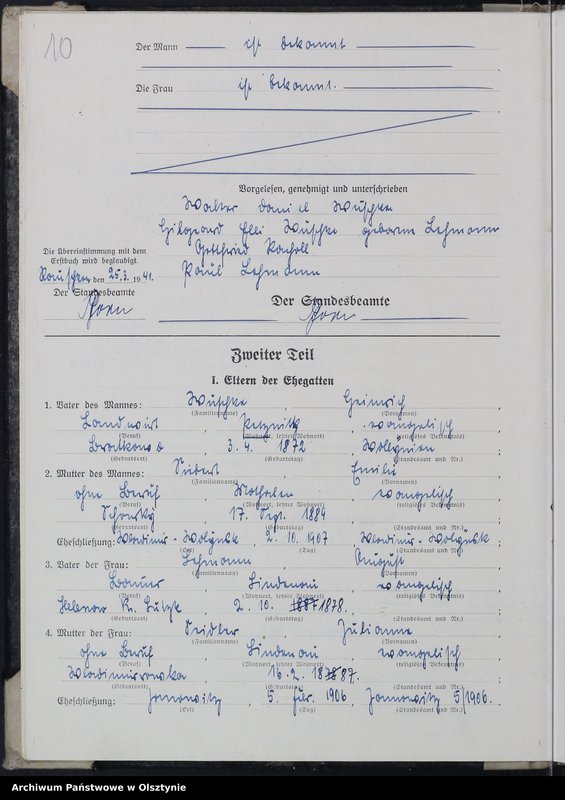 10
Der Mann ist bekannt
Die Frau ist bekannt.
Vorgelesen, genehmigt und unterschrieben
Walter Daniel Wuschke
Wuschke geborene Lehmann
Gottfried
Paul Lehmann
Die Übereinstimmung mit dem
Erstbuch wird beglaubigt.
den 25.3. 1941.
Der Standesbeamte
Der Standesbeamte
Zweiter Teil
I. Eltern der Ehegatten
1. Vater des Mannes: Wuschke, Heinrich,
(Familienname) (Vornamen)
Landwirt, evangelisch
(Beruf) (Wohnort, letzter Wohnort) (religiöses Bekenntnis)
3. 4. 1872 Wolhynien
(Geburtsort) (Geburtstag) (Standesamt und Nr.)
2. Mutter des Mannes: Emilie,
(Familienname) (Vornamen)
ohne Beruf, evangelisch
(Beruf) (Wohnort, letzter Wohnort) (religiöses Bekenntnis)
17. Sept. 1884
(Geburtsort) (Geburtstag) (Standesamt und Nr.)
Eheschließung: Wladimir-Wolynsk 2. 10. 1907 Wladimir-Wolynsk;
(Ort) (Tag) (Standesamt und Nr.)
3. Vater der Frau: Lehmann, August,
(Familienname) (Vornamen)
Bauer, Lindenau, evangelisch
(Beruf) (Wohnort, letzter Wohnort) (religiöses Bekenntnis)
Kr. Lutzk 2. 10. 1878.
(Geburtsort) (Geburtstag) (Standesamt und Nr.)
4. Mutter der Frau: Seidler, Julianne
(Familienname) (Vornamen)
ohne Beruf, Lindenau, evangelisch
(Beruf) (Wohnort, letzter Wohnort) (religiöses Bekenntnis)
16. 2. 1887.
(Geburtsort) (Geburtstag) (Standesamt und Nr.)
Eheschließung: 5. 1906 5/1906.
(Ort) (Tag) (Standesamt und Nr.)
Archiwum Państwowe w Olsztynie